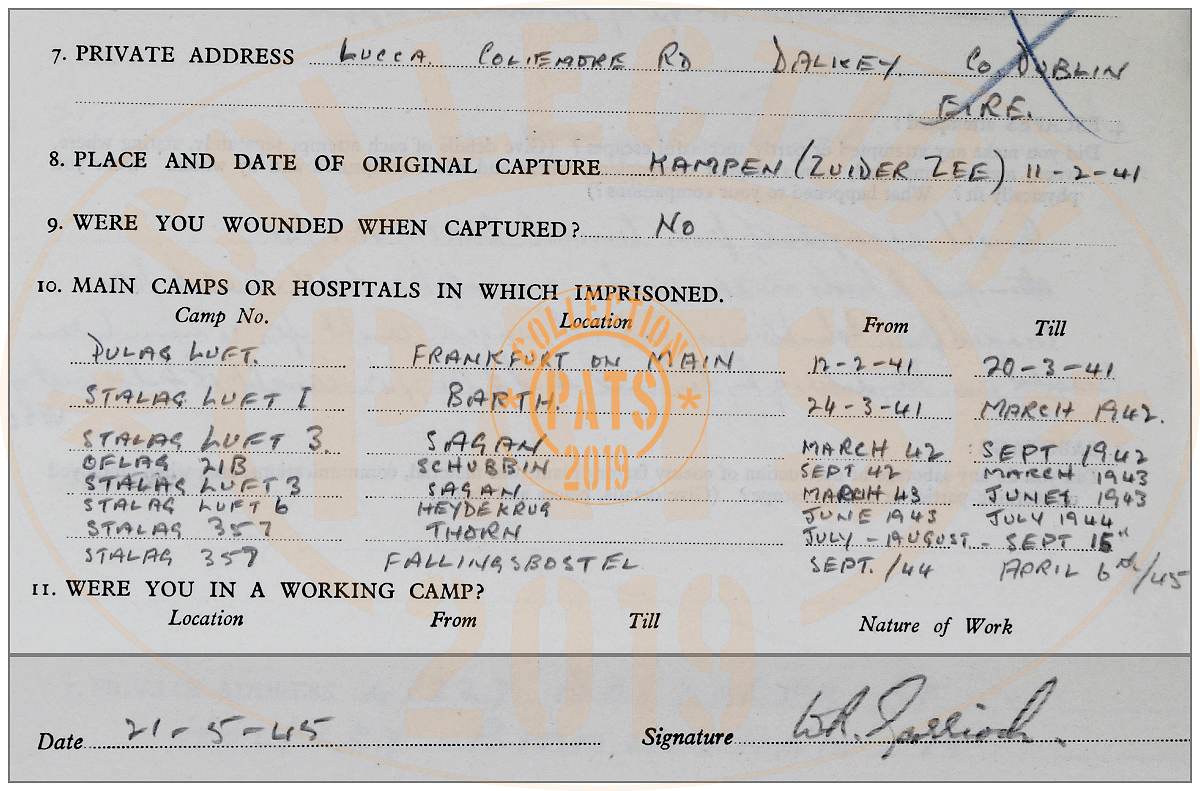 7. PRIVATE ADDRESS LUCCA COLIEMORE RD DALKEY. CO. DUBLIN
EIRE.
8. PLACE AND DATE OF ORIGINAL CAPTURE KAMPEN (ZUIDER ZEE) 11-2-41
9. WERE YOU WOUNDED WHEN CAPTURED? NO
10. MAIN CAMPS OR HOSPITALS IN WHICH IMPRISONED.
Camp No. Location From Till
DULAG LUFT. FRANKFURT ON MAIN 12-2-41 20-3-41
STALAG LUFT I BARTH. 24-3-41 MARCH 1942.
STALAG LUFT 3. SAGAN MARCH 42 SEPT 1942
OFLAG 21B SCHUBBIN SEPT 42 MARCH 1943
STALAG LUFT 3 SAGAN MARCH 43 JUNE 1943
STALAG LUFT 6 HEYDEKRUG JUNE 1943 JULY 1944
STALAG 357 THORN JULY - AUGUST - SEPT 15TH
STALAG 357 FALLINGSBOSTEL SEPT. /44 APRIL 6TH/45
11. WERE YOU IN A WORKING CAMP?
Location From Till Nature of Work
Date 21-5-45 Signature
COLLECTION
PATS
2019